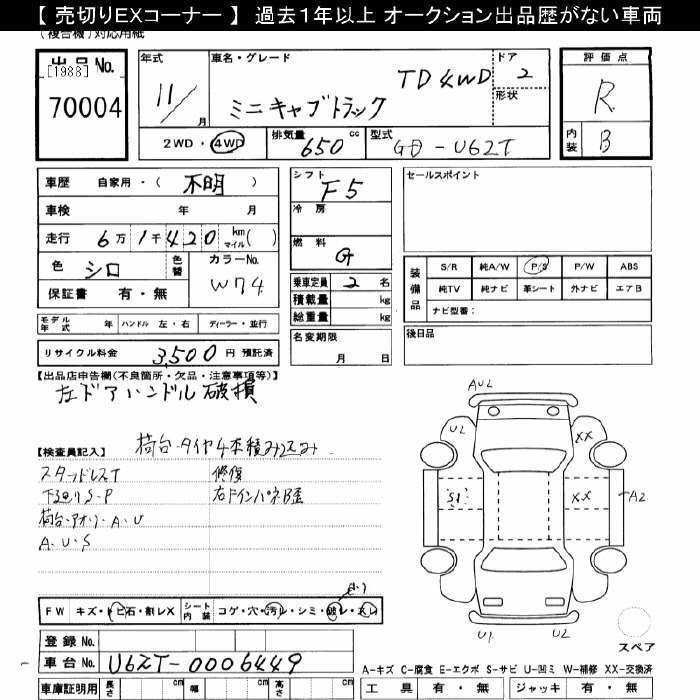 【 売切りEXコーナー 】 過去1年以上 オークション出品歴がない車両
(複合機)対応用紙
出品No.
[1988]
70004
年式
11/
月
車名・グレード
TD 4WD
ミニキャブトラック
ドア
2
形状
2WD・4WD
排気量
650
cc
型式
U62T
評価点
R
内装
B
車歴 自家用・( 不明 )
車検 年 月
走行 6万1千420 km マイル( )
色 シロ
色替
カラーNo.
W74
保証書 有・無
シフト
F5
冷房
燃料
G
乗車定員 2 名
積載量 kg
総重量 kg
名変期限
月 日
セールスポイント
装備品
S/R 純A/W P/S P/W ABS
純TV 純ナビ 革シート 外ナビ エアB
ナビ型番:
後日品
モデル年式 年 ハンドル 左・右 ディーラー・並行
リサイクル料金 3,500 円 預託済
【出品店申告欄(不良箇所・欠品・注意事項等)】
左ドアハンドル破損
荷台タイヤ4本積み込み
【検査員記入】
スタッドレスT
修復
下廻りS・P
右ドインパネB歪
荷台・アオリ・A・U
A・U・S
FW キズ・トビ石・割レX
シート内装 コゲ・穴・汚レ・シミ・破レ・スレ
登録No.
車台No. U62T-0006449
車庫証明用 長さ cm 幅 cm 高さ cm
AU2
U2
XX
S1
XX
A2
U1
U2
スペア
A-キズ C-腐食 E-エクボ S-サビ U-凹ミ W-補修 XX-交換済
工具 有・無 ジャッキ 有・無